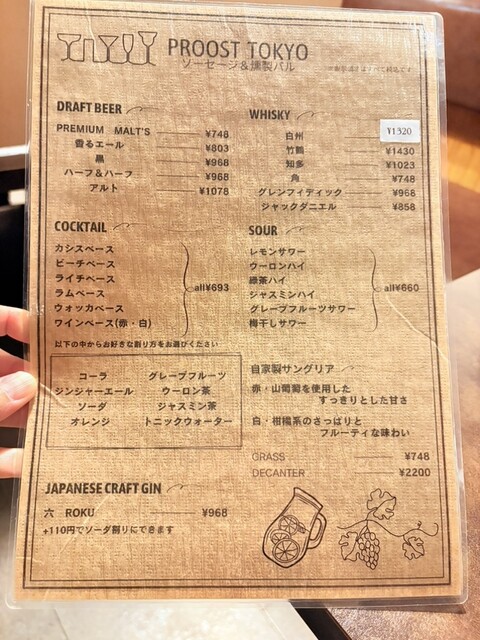 PROOST TOKYO
ソーセージ&燻製バル
※表示価格はすべて税込です
DRAFT BEER
PREMIUM MALT'S ¥748
香るエール ¥803
黒 ¥968
ハーフ&ハーフ ¥968
アルト ¥1078
WHISKY
白州 ¥1320
竹鶴 ¥1430
知多 ¥1023
角 ¥748
グレンフィディック ¥968
ジャックダニエル ¥858
COCKTAIL
カシスベース
ピーチベース
ライチベース
ラムベース
ウォッカベース
ワインベース(赤・白)
all¥693
以下の中からお好きな割り方をお選びください
コーラ グレープフルーツ
ジンジャーエール ウーロン茶
ソーダ ジャスミン茶
オレンジ トニックウォーター
SOUR
レモンサワー
ウーロンハイ
緑茶ハイ
ジャスミンハイ
グレープフルーツサワー
梅干しサワー
all¥660
自家製サングリア
赤・山葡萄を使用した
すっきりとした甘さ
白・柑橘系のさっぱりと
フルーティな味わい
GRASS ¥748
DECANTER ¥2200
JAPANESE CRAFT GIN
六 ROKU ¥968
+110円でソーダ割りにできます